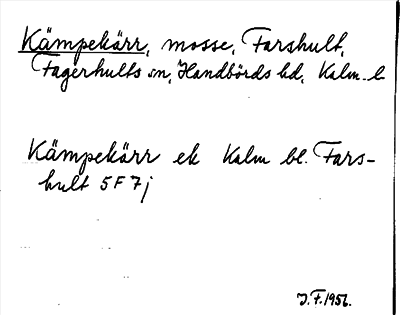 Kämpekärr, mosse, Farshult,
Fagerhults sn, Handbörds hd, Kalm. l
Kämpekärr ek Kalm bl. Fars-
hult 5F7j
J.F. 1956.